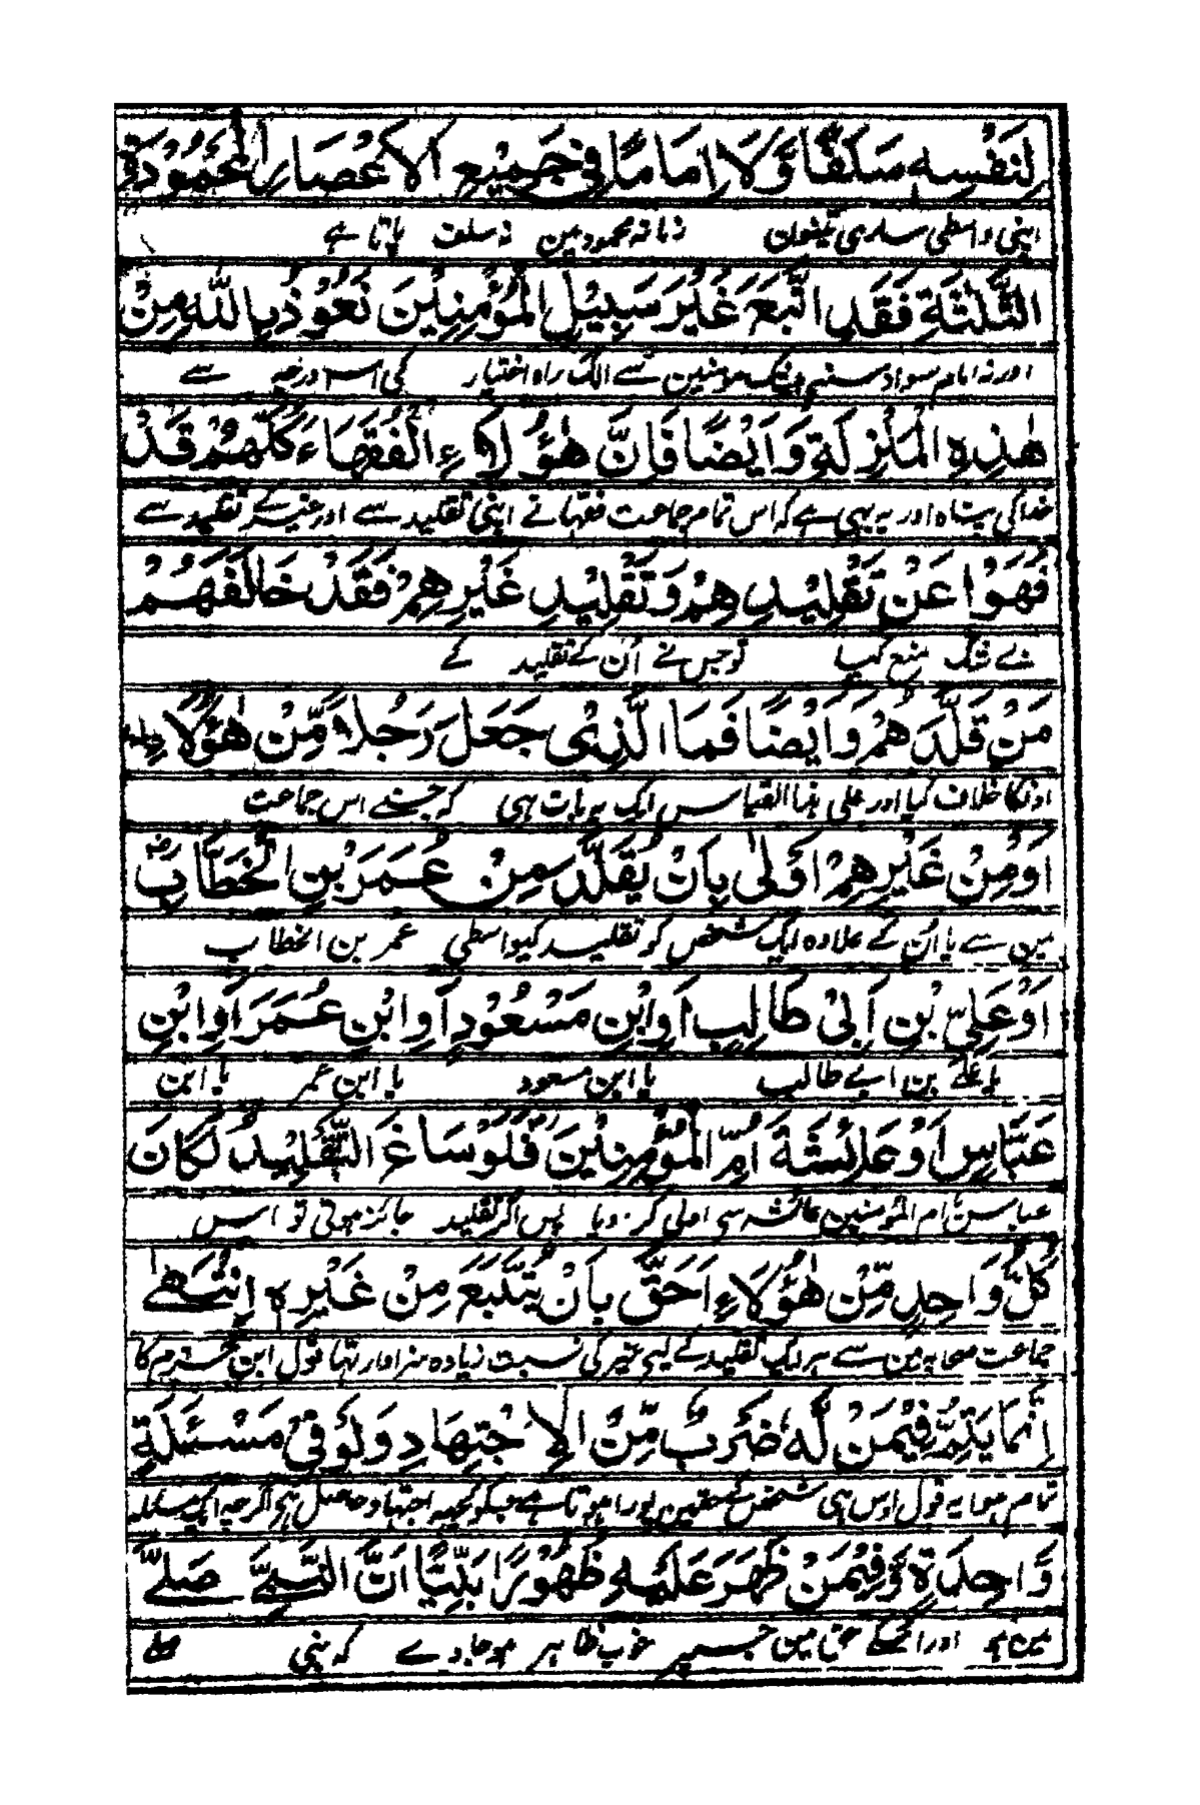 لِنَفْسِهٖ سَلَفًا وَّلَا اِمَامًا فِيْ جَمِيْعِ الْاَعْصَارِ الْمَحْمُوْدَةِ
اپنی واسطی ساری تینوں زمانہ محمود مین نہ سلف پاتا ہے
الثَّلٰثَةِ فَقَدِ اتَّبَعَ غَيْرَ سَبِيْلِ الْمُؤْمِنِيْنَ نَعُوْذُ بِاللّٰهِ مِنْ
اور نہ امام سواد مومنین سے الگ راہ اختیار کی اس درجہ سے
هٰذِهِ الْمَنْزِلَةِ وَاَيْضًا فَاِنَّ هٰؤُلَاءِ الْفُقَهَاءَ كُلَّهُمْ قَدْ
خدا کی پناہ اور یہ بہی ہے کہ اس تمام جماعت فقہا نے اپنی تقلید سے اور غیر کے تقلید سے
نَهَوْا عَنْ تَقْلِيْدِهِمْ وَتَقْلِيْدِ غَيْرِهِمْ فَقَدْ خَالَفَهُمْ
بے شک منع کیا تو جس نے اُن کے تقلید کے
مَنْ قَلَّدَهُمْ وَاَيْضًا فَمَا الَّذِيْ جَعَلَ رَجُلًا مِّنْ هٰؤُلَاءِ
اونکا خلاف کیا اور علی ہذا القیاس ایک یہ بات ہی کہ جسنے اس جماعت
اَوْ مِنْ غَيْرِهِمْ اَوْلٰى بِاَنْ يُّقَلَّدَ مِنْ عُمَرَ بْنِ الْخَطَّابِ رض
مین سے یا اُن کے علاوہ ایک شخص کو تقلید کیواسطی عمر بن الخطاب
اَوْ عَلِيِّ بْنِ اَبِيْ طَالِبٍ اَوِ ابْنِ مَسْعُوْدٍ اَوِ ابْنِ عُمَرَ اَوِ ابْنِ
یا علے بن ابے طالب یا ابن مسعود یا ابن عمر یا ابن
عَبَّاسٍ اَوْ عَائِشَةَ اُمِّ الْمُؤْمِنِيْنَ فَلَوْ سَاغَ التَّقْلِيْدُ لَكَانَ
عباس یا ام المومنین عائشہ سی اولی کر دیا پس اگر تقلید جائز ہوتی تو اس
كُلُّ وَاحِدٍ مِّنْ هٰؤُلَاءِ اَحَقَّ بِاَنْ يُّتَّبَعَ مِنْ غَيْرِهٖ اِنْتَهٰى
جماعت صحابہ مین سے ہر ایک تقلید کے لیی غیر کی نسبت زیادہ سزاوار تہا قول ابن حزم کا
اِنَّمَا يَتِمُّ فِيْمَنْ لَّهٗ ضَرْبٌ مِّنَ الْاِجْتِهَادِ وَلَوْ فِيْ مَسْئَلَةٍ
تمام ہوا یہ قول اوس ہی شخص کے حقمین پورا ہوتا ہے جسکو کچہہ اجتہاد حاصل ہی اگرچہ ایک مسئلہ
وَّاحِدَةٍ وَّفِيْمَنْ ظَهَرَ عَلَيْهِ ظُهُوْرًا بَيِّنًا اَنَّ النَّبِيَّ صَلَّى
مین ہو اور اسکے حق مین جسپر خوب ظاہر ہو جاوے کہ نبی صلے